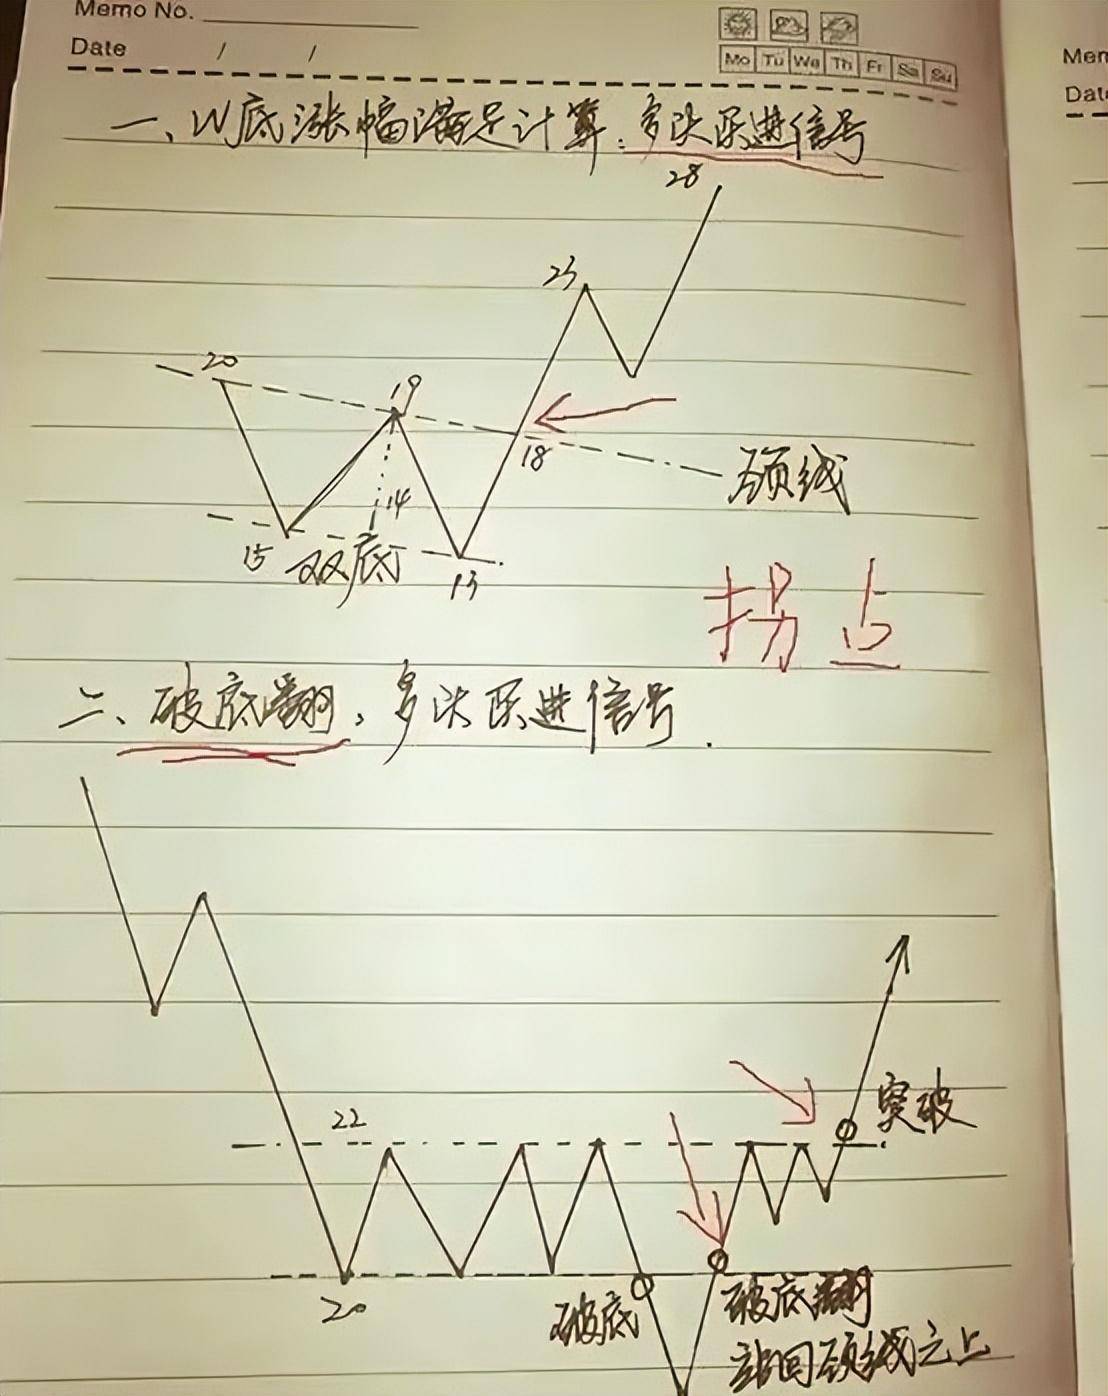 Memo No.
Date / /
Mo Tu We Th Fr Sa Su
Mem
Dat
一、W底涨幅满足计算：多头跃进信号
28
23
20
19
18
颈线
14
15 双底 13
拐点
二、破底翻，多头跃进信号.
突破
22
20
破底
破底翻
站回颈线之上